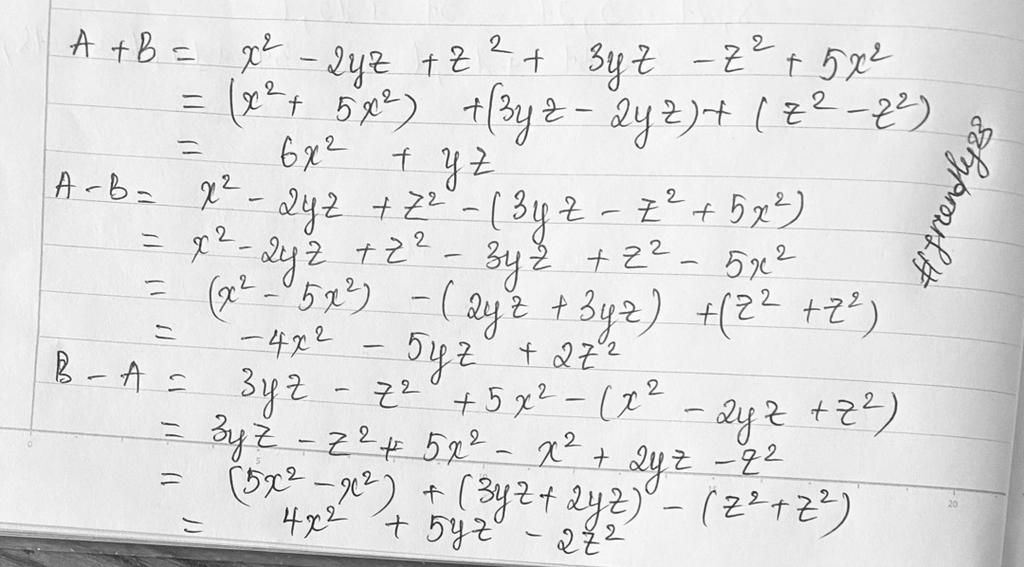 A + B = x² - 2yz + z² + 3yz - z² + 5x²
= (x² + 5x²) + (3yz - 2yz) + (z² - z²)
= 6x² + yz
A - B = x² - 2yz + z² - (3yz - z² + 5x²)
= x² - 2yz + z² - 3yz + z² - 5x²
= (x² - 5x²) - (2yz + 3yz) + (z² + z²)
= -4x² - 5yz + 2z²
B - A = 3yz - z² + 5x² - (x² - 2yz + z²)
= 3yz - z² + 5x² - x² + 2yz - z²
= (5x² - x²) + (3yz + 2yz) - (z² + z²)
= 4x² + 5yz - 2z²
20